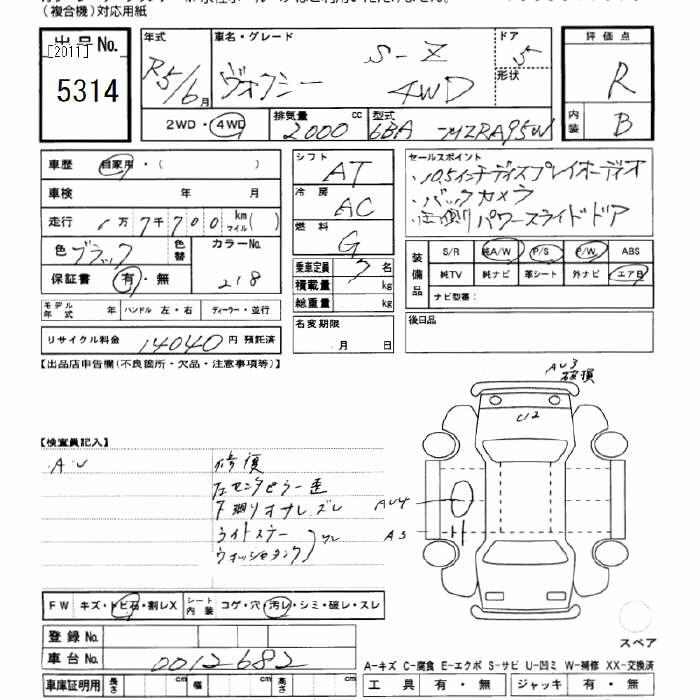 (複合機)対応用紙
出品No.
[2011]
5314
年式
R5/6月
車名・グレード
ヴォクシー S-Z 4WD
ドア
5
形状
2WD・4WD
排気量 cc
2000
型式
6BA-MZRA95W
評価点
R
内装
B
車歴 自家用・( )
車検 年 月
走行 1万7千700 km マイル( )
色 ブラック
色替
カラーNo.
218
保証書 有・無
モデル年式 年 ハンドル 左・右 ディーラー・並行
リサイクル料金 14040円 預託済
シフト AT
冷房 AC
燃料 G
乗車定員 7名
積載量 kg
総重量 kg
名変期限
月 日
セールスポイント
・10.5インチディスプレイオーディオ
・バックカメラ
・左側パワースライドドア
装備品
S/R 純A/W P/S P/W ABS
純TV 純ナビ 革シート 外ナビ エアB
ナビ型番:
後日品
【出品店申告欄(不良箇所・欠品・注意事項等)】
【検査員記入】
AU
修復
左センタピラー歪
下廻りオサレ、ズレ
ライトステー
ウォッシャタンク
AU3
破損
U2
AU4
A3
FW キズ・トビ石・割レX
シート内装 コゲ・穴・汚レ・シミ・破レ・スレ
登録No.
車台No.
0012682
車庫証明用 長さ cm 幅 cm 高さ cm
スペア
A-キズ C-腐食 E-エクボ S-サビ U-凹ミ W-補修 XX-交換済
工具 有・無 ジャッキ 有・無